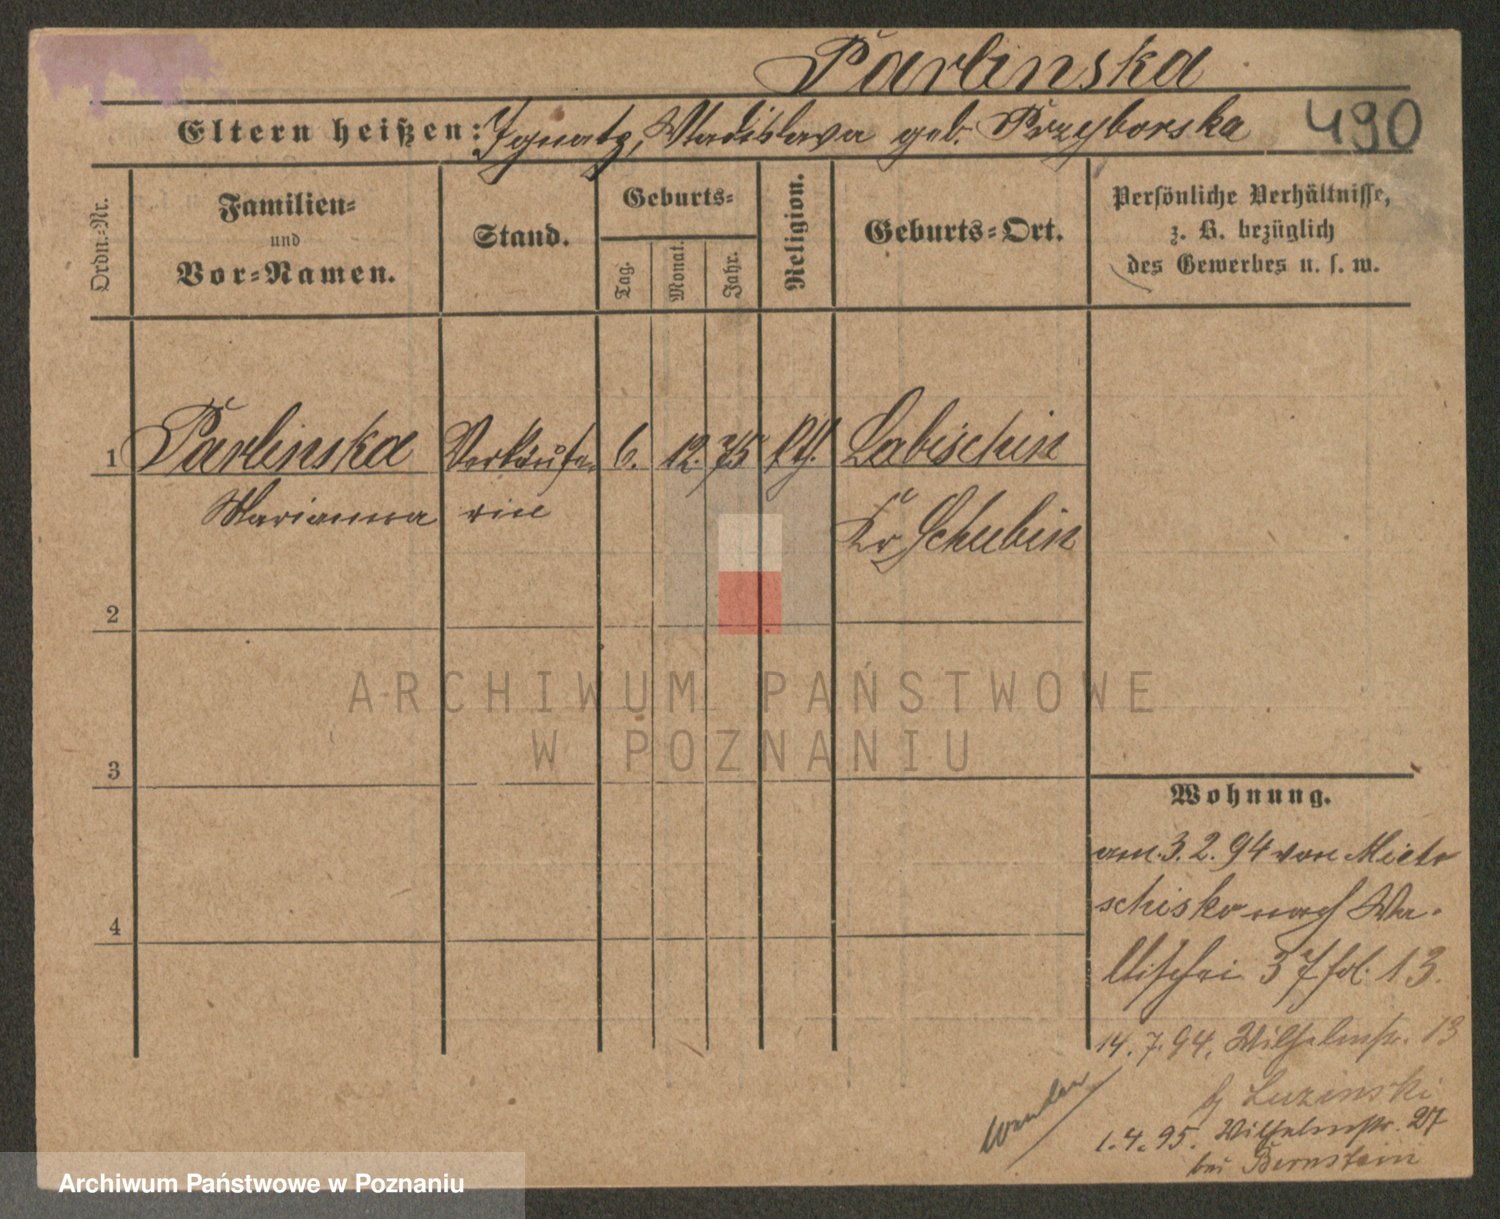 Parlinska
490
Eltern heißen: Ignatz, Wladislava geb. Przyborska
Ordn.-Nr.
Familien-
und
Vor-Namen.
Stand.
Geburts-
Tag.
Monat.
Jahr.
Religion.
Geburts-Ort.
Persönliche Verhältnisse,
z. B. bezüglich
des Gewerbes u. s. w.
1 Parlinska Verkäufe- 6. 12. 75 kth. Labischin
Marianna rin Kr. Schubin
2
3
4
Wohnung.
am 3. 2. 94 von Mietr
schisko nach Wa-
llischei 37 fol. 13.
14. 7. 94. Wilhelmstr. 13
Luzinski
1. 4. 95. Wilhelmstr. 27
bei Bernstein
ARCHIWUM PAŃSTWOWE
W POZNANIU
Archiwum Państwowe w Poznaniu